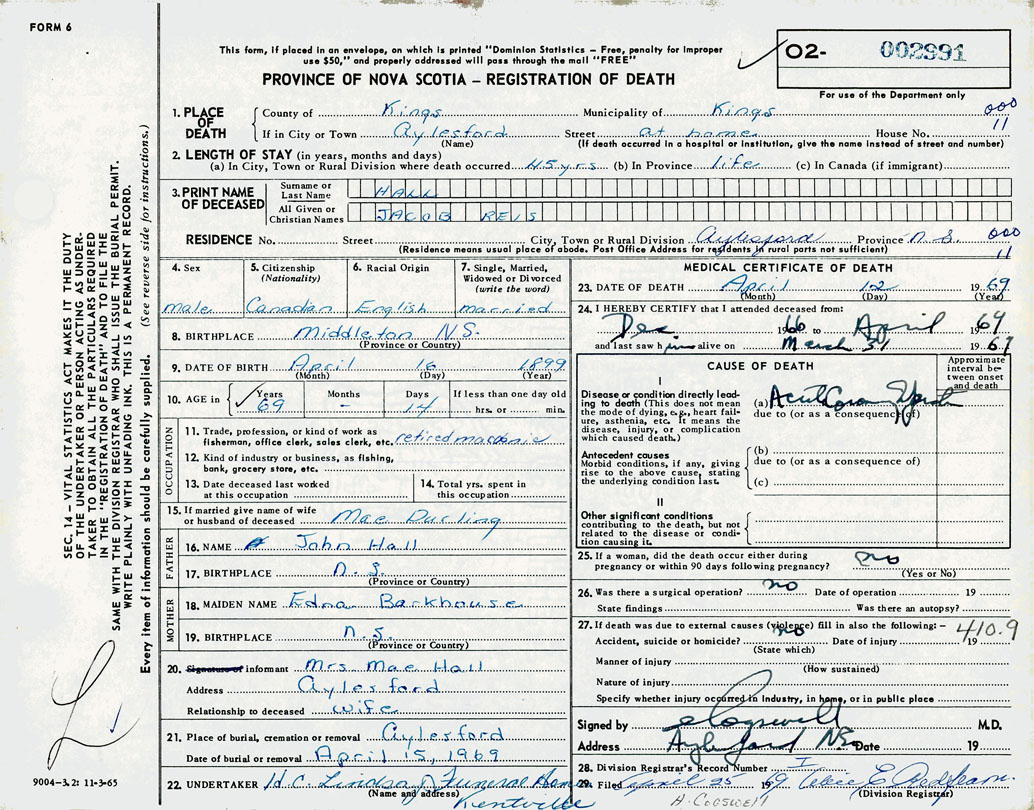 FORM 6
This form, if placed in an envelope, on which is printed "Dominion Statistics – Free, penalty for improper
use $50," and properly addressed will pass through the mail "FREE"
PROVINCE OF NOVA SCOTIA – REGISTRATION OF DEATH
O2- 002991
For use of the Department only
1. PLACE OF DEATH County of Kings Municipality of Kings 000
If in City or Town Aylesford Street at home House No. 11
(Name) (If death occurred in a hospital or institution, give the name instead of street and number)
2. LENGTH OF STAY (in years, months and days)
(a) In City, Town or Rural Division where death occurred 45 yrs. (b) In Province life (c) In Canada (if immigrant)
3. PRINT NAME OF DECEASED
Surname or Last Name HALL
All Given or Christian Names JACOB REIS
RESIDENCE No. Street City, Town or Rural Division Aylesford Province N.S. 000
(Residence means usual place of abode. Post Office Address for residents in rural parts not sufficient) 11
4. Sex male
5. Citizenship (Nationality) Canadian
6. Racial Origin English
7. Single, Married, Widowed or Divorced (write the word) married
8. BIRTHPLACE Middleton N.S.
(Province or Country)
9. DATE OF BIRTH April 16 1899
(Month) (Day) (Year)
10. AGE in Years 69 Months - Days 14 If less than one day old
hrs. or min.
OCCUPATION
11. Trade, profession, or kind of work as
fisherman, office clerk, sales clerk, etc. retired
12. Kind of industry or business, as fishing,
bank, grocery store, etc.
13. Date deceased last worked
at this occupation
14. Total yrs. spent in
this occupation
15. If married give name of wife
or husband of deceased Mae Durling
FATHER
16. NAME John Hall
17. BIRTHPLACE N.S.
(Province or Country)
MOTHER
18. MAIDEN NAME Edna Barkhouse
19. BIRTHPLACE N.S.
(Province or Country)
20. Signature of informant Mrs Mae Hall
Address Aylesford
Relationship to deceased wife
21. Place of burial, cremation or removal Aylesford
Date of burial or removal April 15, 1969
22. UNDERTAKER H.C. Lindsay Funeral Home
(Name and address)
Kentville
MEDICAL CERTIFICATE OF DEATH
23. DATE OF DEATH April 12 1969
(Month) (Day) (Year)
24. I HEREBY CERTIFY that I attended deceased from:
Dec 1966 to April 1969
and last saw him alive on March 31 1969
CAUSE OF DEATH
Approximate interval between onset and death
I
Disease or condition directly leading to death (This does not mean the mode of dying, e.g., heart failure, asthenia, etc. It means the disease, injury, or complication which caused death.)
(a)
due to (or as a consequence of)
Antecedent causes
Morbid conditions, if any, giving rise to the above cause, stating the underlying condition last.
(b)
due to (or as a consequence of)
(c)
II
Other significant conditions
contributing to the death, but not
related to the disease or condition causing it.
25. If a woman, did the death occur either during
pregnancy or within 90 days following pregnancy? no
(Yes or No)
26. Was there a surgical operation? no Date of operation 19
State findings Was there an autopsy?
27. If death was due to external causes (violence) fill in also the following: – 410.9
Accident, suicide or homicide? no Date of injury 19
(State which)
Manner of injury
(How sustained)
Nature of injury
Specify whether injury occurred in industry, in home, or in public place
Signed by Cogswell M.D.
Address Aylesford NS Date 19
28. Division Registrar's Record Number I
29. Filed April 25 1969
(Division Registrar)
A. COGSWELL
SEC. 14 – VITAL STATISTICS ACT MAKES IT THE DUTY
OF THE UNDERTAKER OR PERSON ACTING AS UNDER-
TAKER TO OBTAIN ALL THE PARTICULARS REQUIRED
IN THE "REGISTRATION OF DEATH" AND TO FILE THE
SAME WITH THE DIVISION REGISTRAR WHO SHALL ISSUE THE BURIAL PERMIT.
WRITE PLAINLY WITH UNFADING INK. THIS IS A PERMANENT RECORD.
Every item of information should be carefully supplied. (See reverse side for instructions.)
9004–3.2: 11-3-65